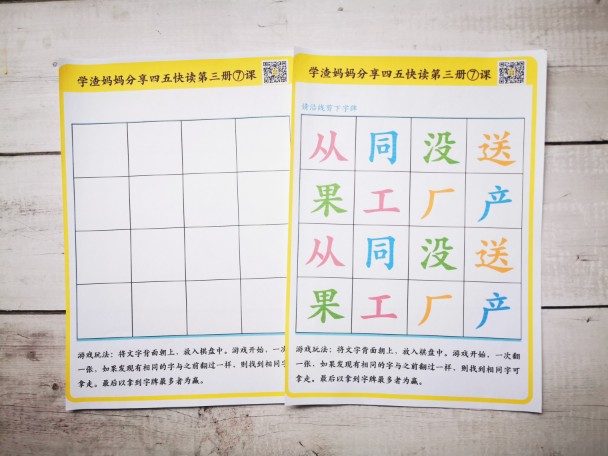 学渣妈妈分享四五快读第三册⑦课
游戏玩法：将文字背面朝上，放入棋盘中。游戏开始，一次翻
一张，如果发现有相同的字与之前翻过一样，则找到相同字
拿走。最后以拿到字牌最多者为赢。
学渣妈妈分享四五快读第三册⑦课
请沿线剪下字牌
从 同 没 送
果 工 厂 产
从 同 没 送
果 工 厂 产
游戏玩法：将文字背面朝上，放入棋盘中。游戏开始，一次翻
一张，如果发现有相同的字与之前翻过一样，则找到相同字可
拿走。最后以拿到字牌最多者为赢。